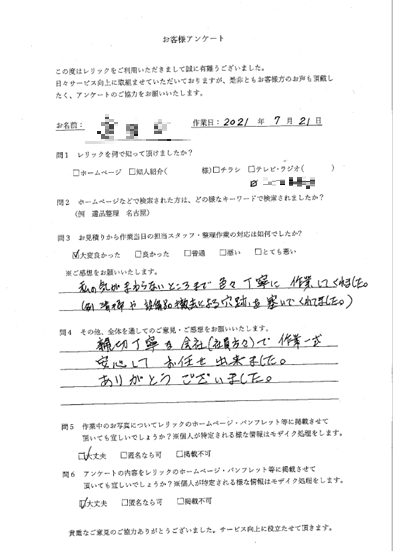 お客様アンケート
この度はレリックをご利用いただきまして誠に有難うございました。
日々サービス向上に取組ませていただいておりますが、是非ともお客様方のお声も頂戴し
たく、アンケートのご協力をお願いいたします。
お名前: 作業日: 2021 年 7 月 21 日
問1 レリックを何で知って頂けましたか?
□ホームページ □知人紹介( 様)□チラシ □テレビ・ラジオ( )
問2 ホームページなどで検索された方は、どの様なキーワードで検索されましたか?
(例 遺品整理 名古屋)
問3 お見積りから作業当日の担当スタッフ・整理作業の対応は如何でしたか?
☑大変良かった □良かった □普通 □悪い □とても悪い
※ご感想をお願いいたします。
私の気がまわらないところまで色々丁寧に作業してくれました。
(例 清掃や 撤去による穴跡を塞いでくれてました。)
問4 その他、全体を通してのご意見・ご感想をお願いいたします。
親切丁寧な会社(社員方々)で作業一式
安心してお任せ出来ました。
ありがとうございました。
問5 作業中のお写真についてレリックのホームページ・パンフレット等に掲載させて
頂いても宜しいでしょうか?※個人が特定される様な情報はモザイク処理をします。
☑大丈夫 □匿名なら可 □掲載不可
問6 アンケートの内容をレリックのホームページ・パンフレット等に掲載させて
頂いても宜しいでしょうか?※個人が特定される様な情報はモザイク処理をします。
☑大丈夫 □匿名なら可 □掲載不可
貴重なご意見のご協力ありがとうございました。サービス向上に役立たせて頂きます。